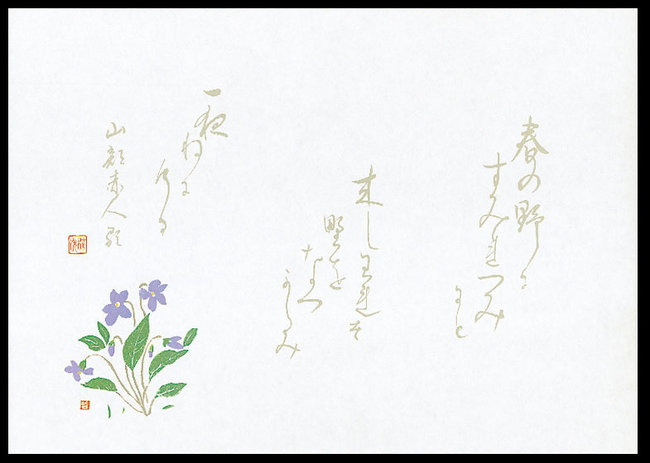 春の野に
すみれつみ
にと
来しわれそ
野を
なつ
かしみ
一夜ねに
ける
山部赤人歌